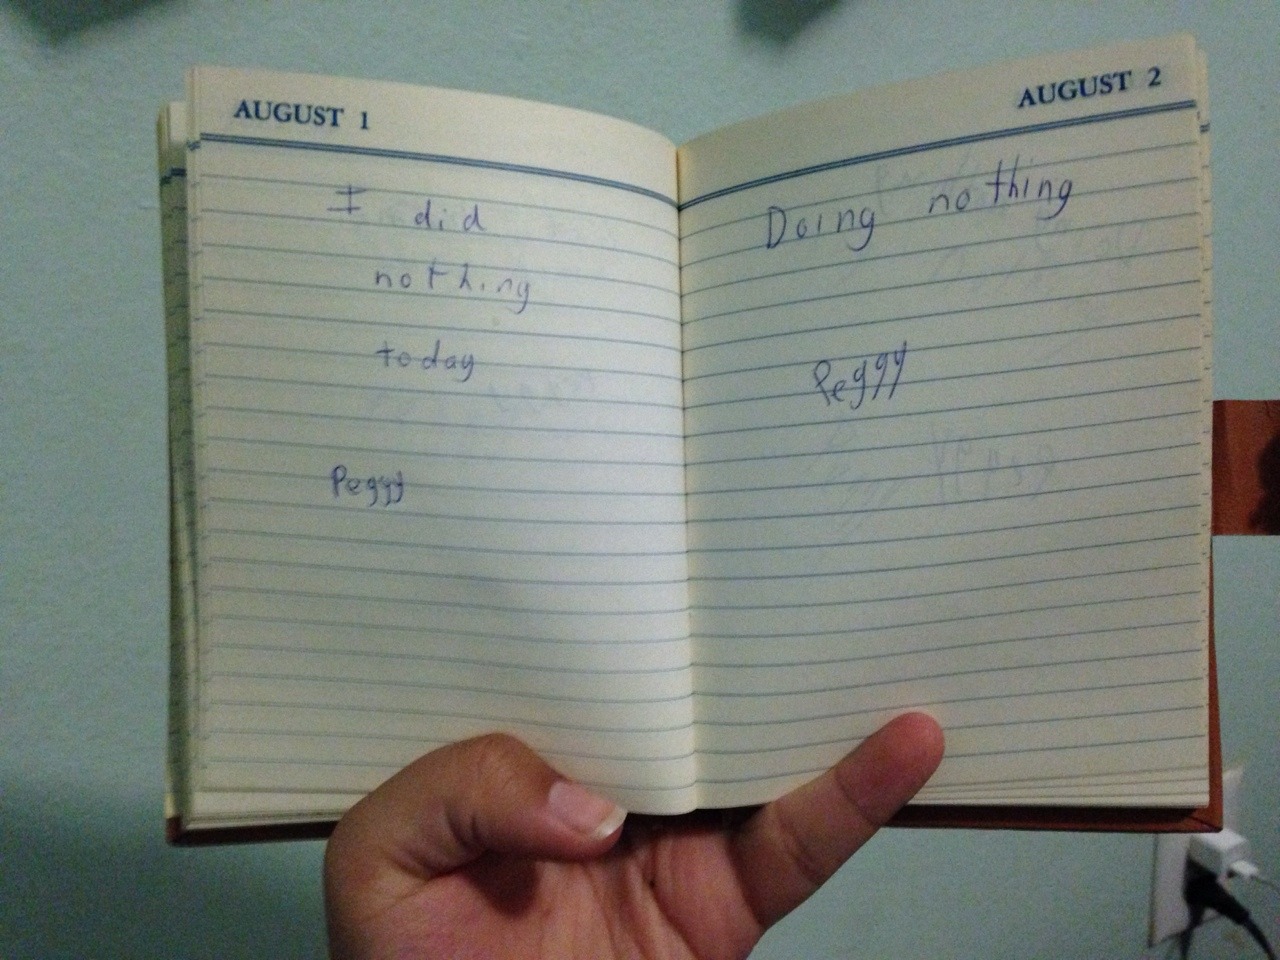 AUGUST 1
I did
nothing
today
Peggy
AUGUST 2
Doing nothing
Peggy